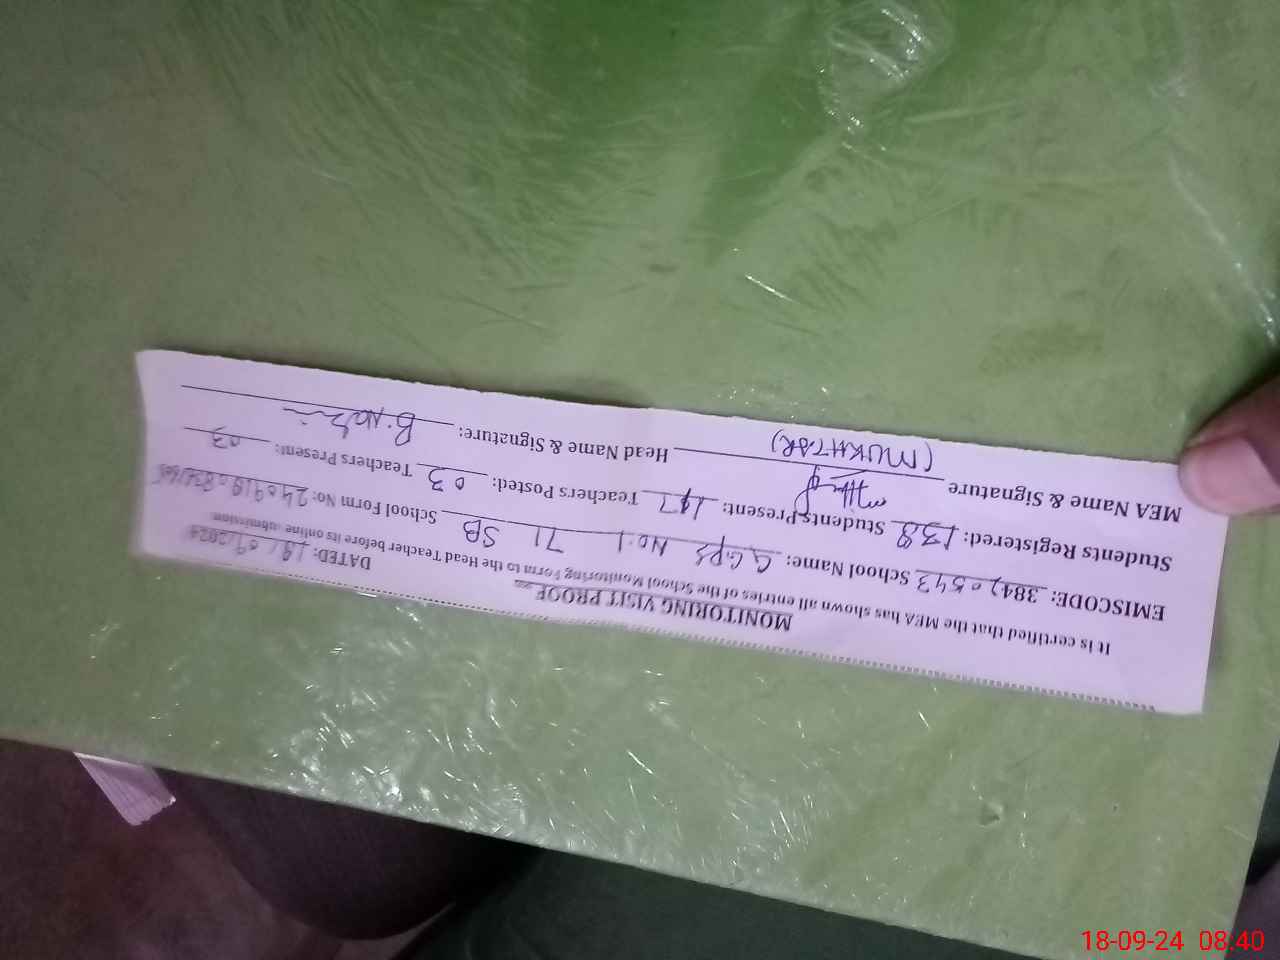 MONITORING VISIT PROOF
It is certified that the MEA has shown all entries of the School Monitoring Form to the Head Teacher before its online submission.
DATED: 18/09/2024
EMISCODE: 38420543 School Name: G.G.P.S No.1 71 SB School Form No:
Students Registered: 138 Students Present: 117 Teachers Posted: 03 Teachers Present: 03
MEA Name & Signature (MUKHTAR) Head Name & Signature:
18-09-24 08:40